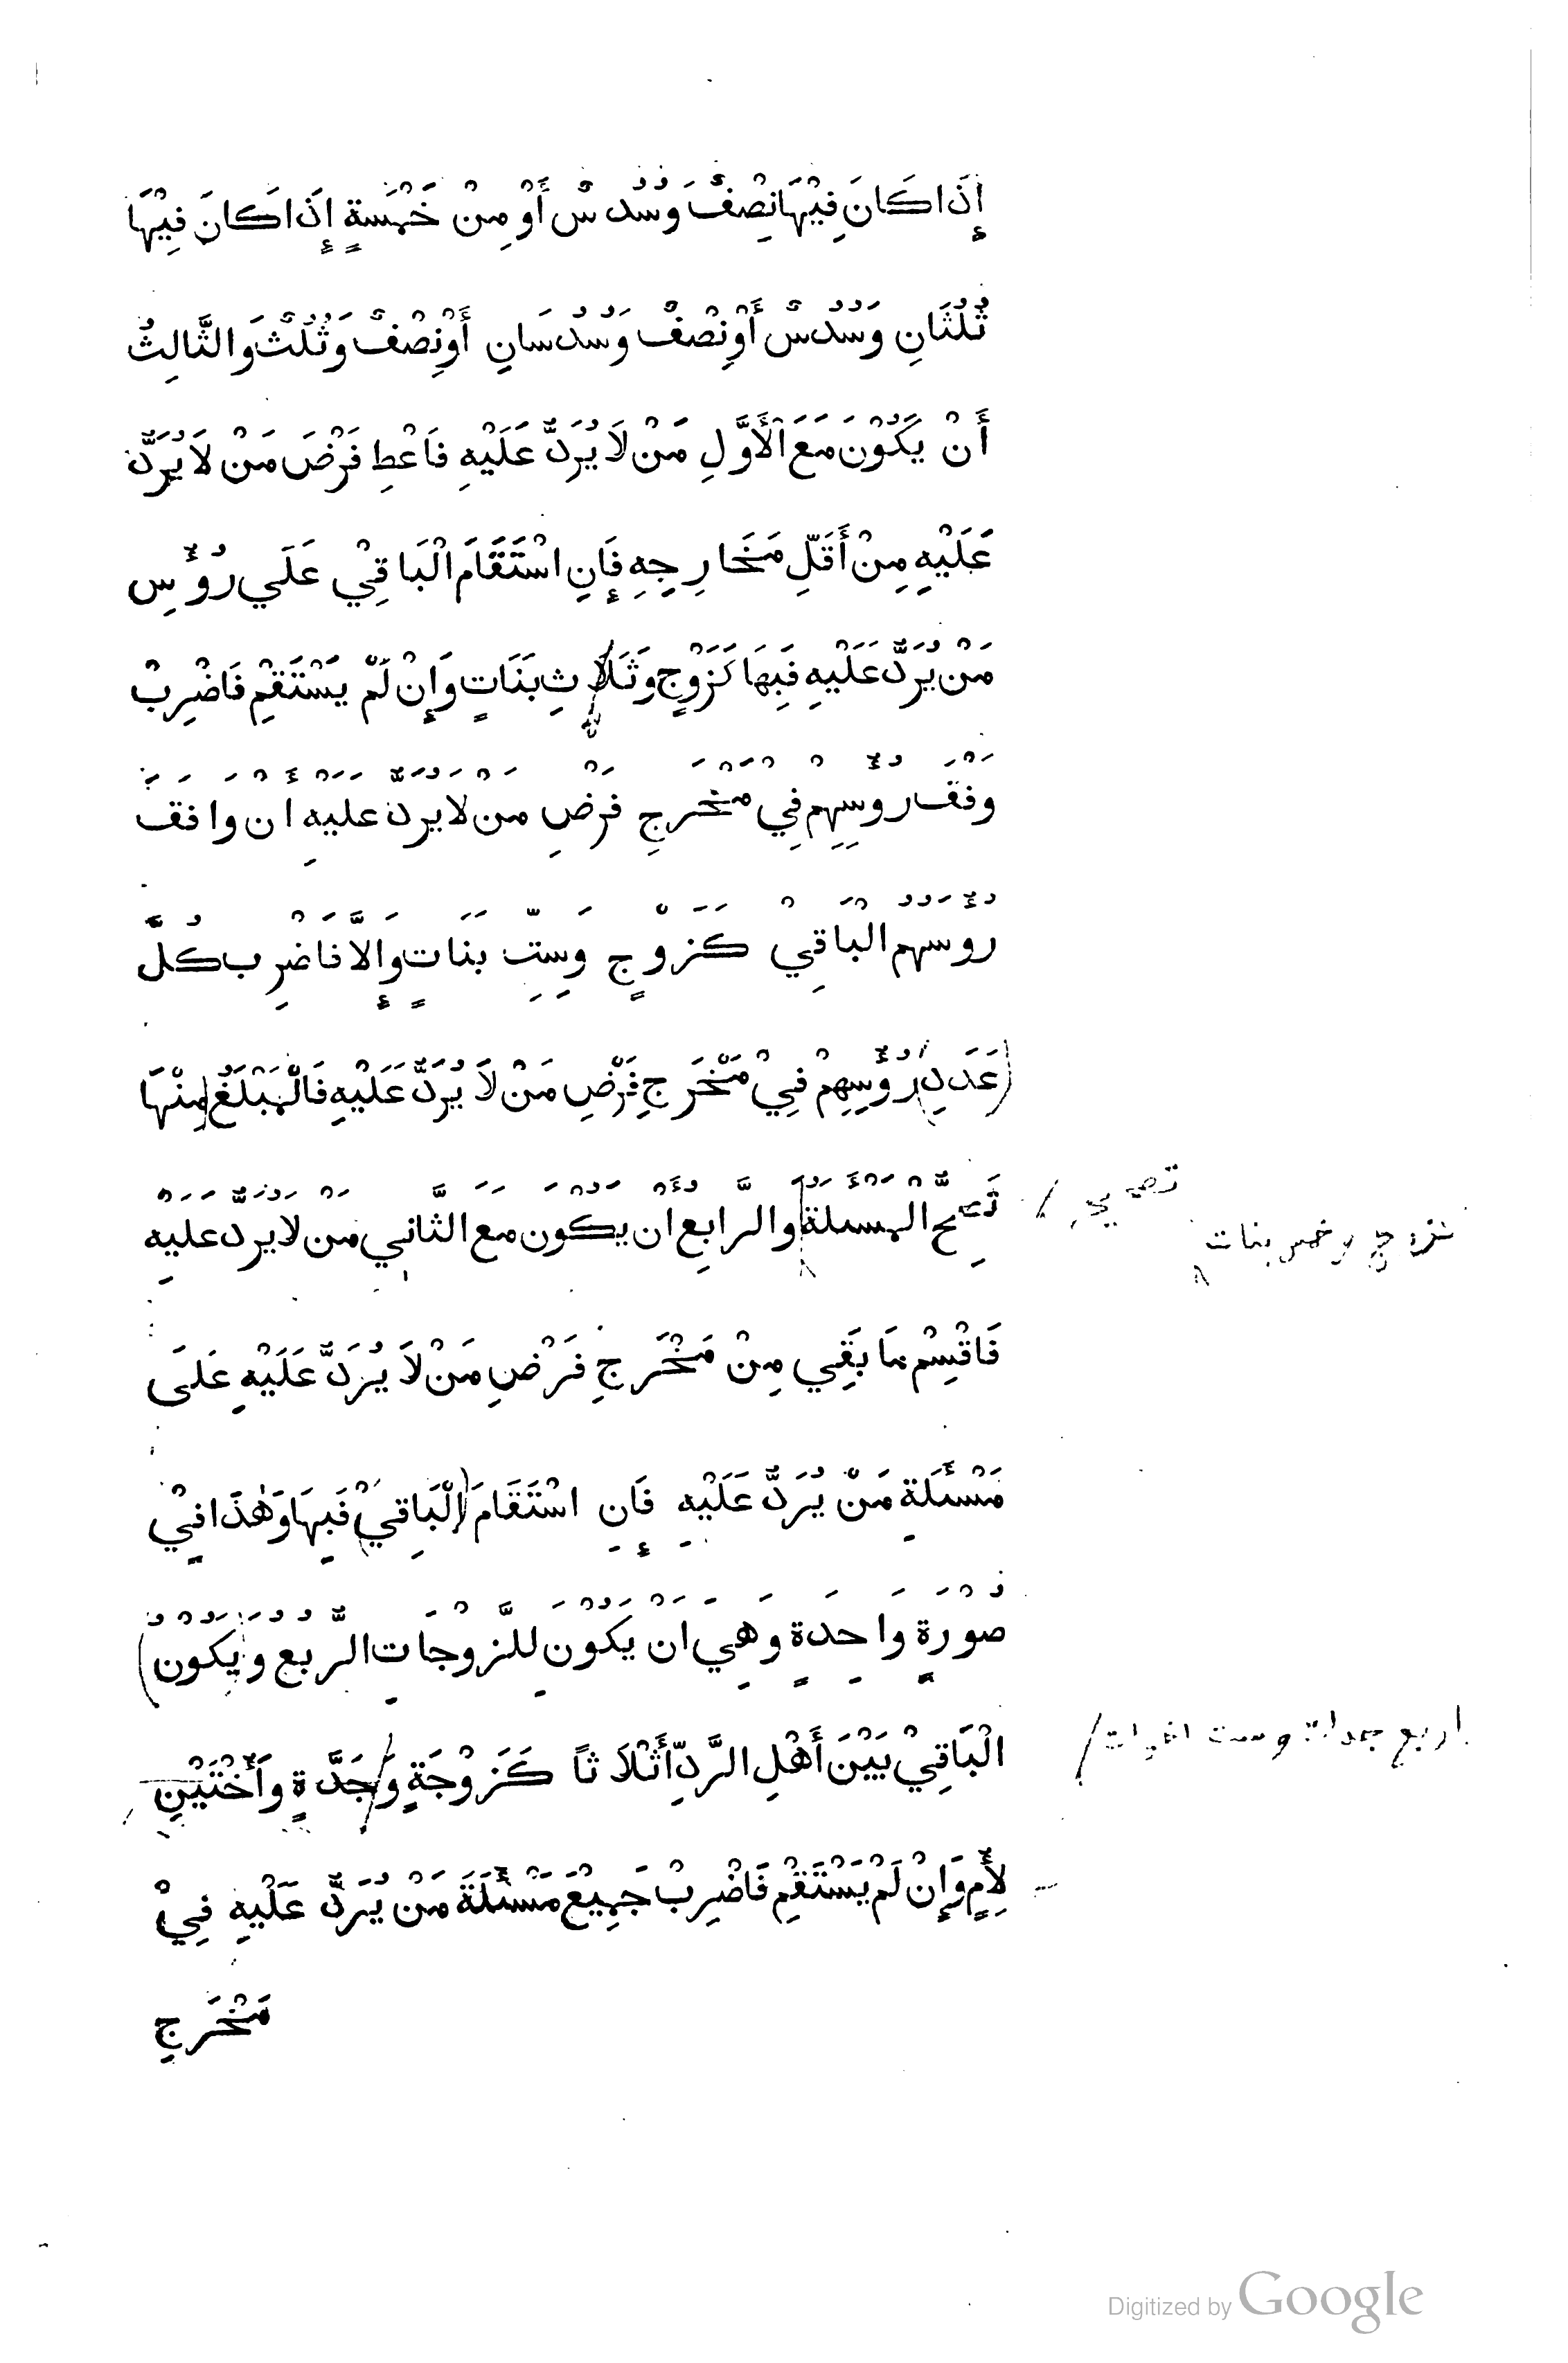 إِذَا كَانَ فِيْهَا نِصْفٌ وَسُدُسٌ أَوْ مِنْ خَمْسَةٍ إِذَا كَانَ فِيْهَا
ثُلُثَانِ وَسُدُسٌ أَوْ نِصْفٌ وَسُدُسَانِ أَوْ نِصْفٌ وَثُلُثٌ وَالثَّالِثُ
أَنْ يَكُوْنَ مَعَ الْأَوَّلِ مَنْ لَا يُرَدُّ عَلَيْهِ فَاعْطِ فَرْضَ مَنْ لَا يُرَدُّ
عَلَيْهِ مِنْ أَقَلِّ مَخَارِجِهِ فَإِنِ اسْتَقَامَ الْبَاقِيْ عَلَي رُؤُسِ
مَنْ يُرَدُّ عَلَيْهِ فَبِهَا كَزَوْجٍ وَثَلَاثِ بَنَاتٍ وَإِنْ لَمْ يَسْتَقِمْ فَاضْرِبْ
وَفْقَ رُؤُسِهِمْ فِي مَخْرَجِ فَرْضِ مَنْ لَا يُرَدُّ عَلَيْهِ أَنْ وَافَقَ
رُؤُسَهُمُ الْبَاقِيْ كَزَوْجٍ وَسِتِّ بَنَاتٍ وَإِلَّا فَاضْرِبْ كُلَّ
(عَدَدِ) رُؤُسِهِمْ فِيْ مَخْرَجِ فَرْضِ مَنْ لَا يُرَدُّ عَلَيْهِ فَالْمَبْلَغُ مِنْهَا
تَصِحُّ الْمَسْئَلَةُ وَالرَّابِعُ أَنْ يَكُوْنَ مَعَ الثَّانِي مَنْ لَا يُرَدُّ عَلَيْهِ
تصحيح
كزوج وخمس بنات
فَاقْسِمْ مَا بَقِي مِنْ مَخْرَجِ فَرْضِ مَنْ لَا يُرَدُّ عَلَيْهِ عَلَى
مَسْئَلَةِ مَنْ يُرَدُّ عَلَيْهِ فَإِنِ اسْتَقَامَ (الْبَاقِيْ) فَبِهَا وَهٰذَا فِيْ
صُوْرَةٍ وَاحِدَةٍ وَهِيَ أَنْ يَكُوْنَ لِلزَّوْجَاتِ الرُّبُعُ وَ(يَكُوْنُ)
الْبَاقِيْ بَيْنَ أَهْلِ الرَّدِّ أَثْلَاثاً كَزَوْجَةٍ وَجَدَّةٍ وَأُخْتَيْنِ
اربع جدات وست اخوات
لِأُمٍّ وَإِنْ لَمْ يَسْتَقِمْ فَاضْرِبْ جَمِيْعَ مَسْئَلَةَ مَنْ يُرَدُّ عَلَيْهِ فِيْ
مَخْرَجِ
Digitized by Google